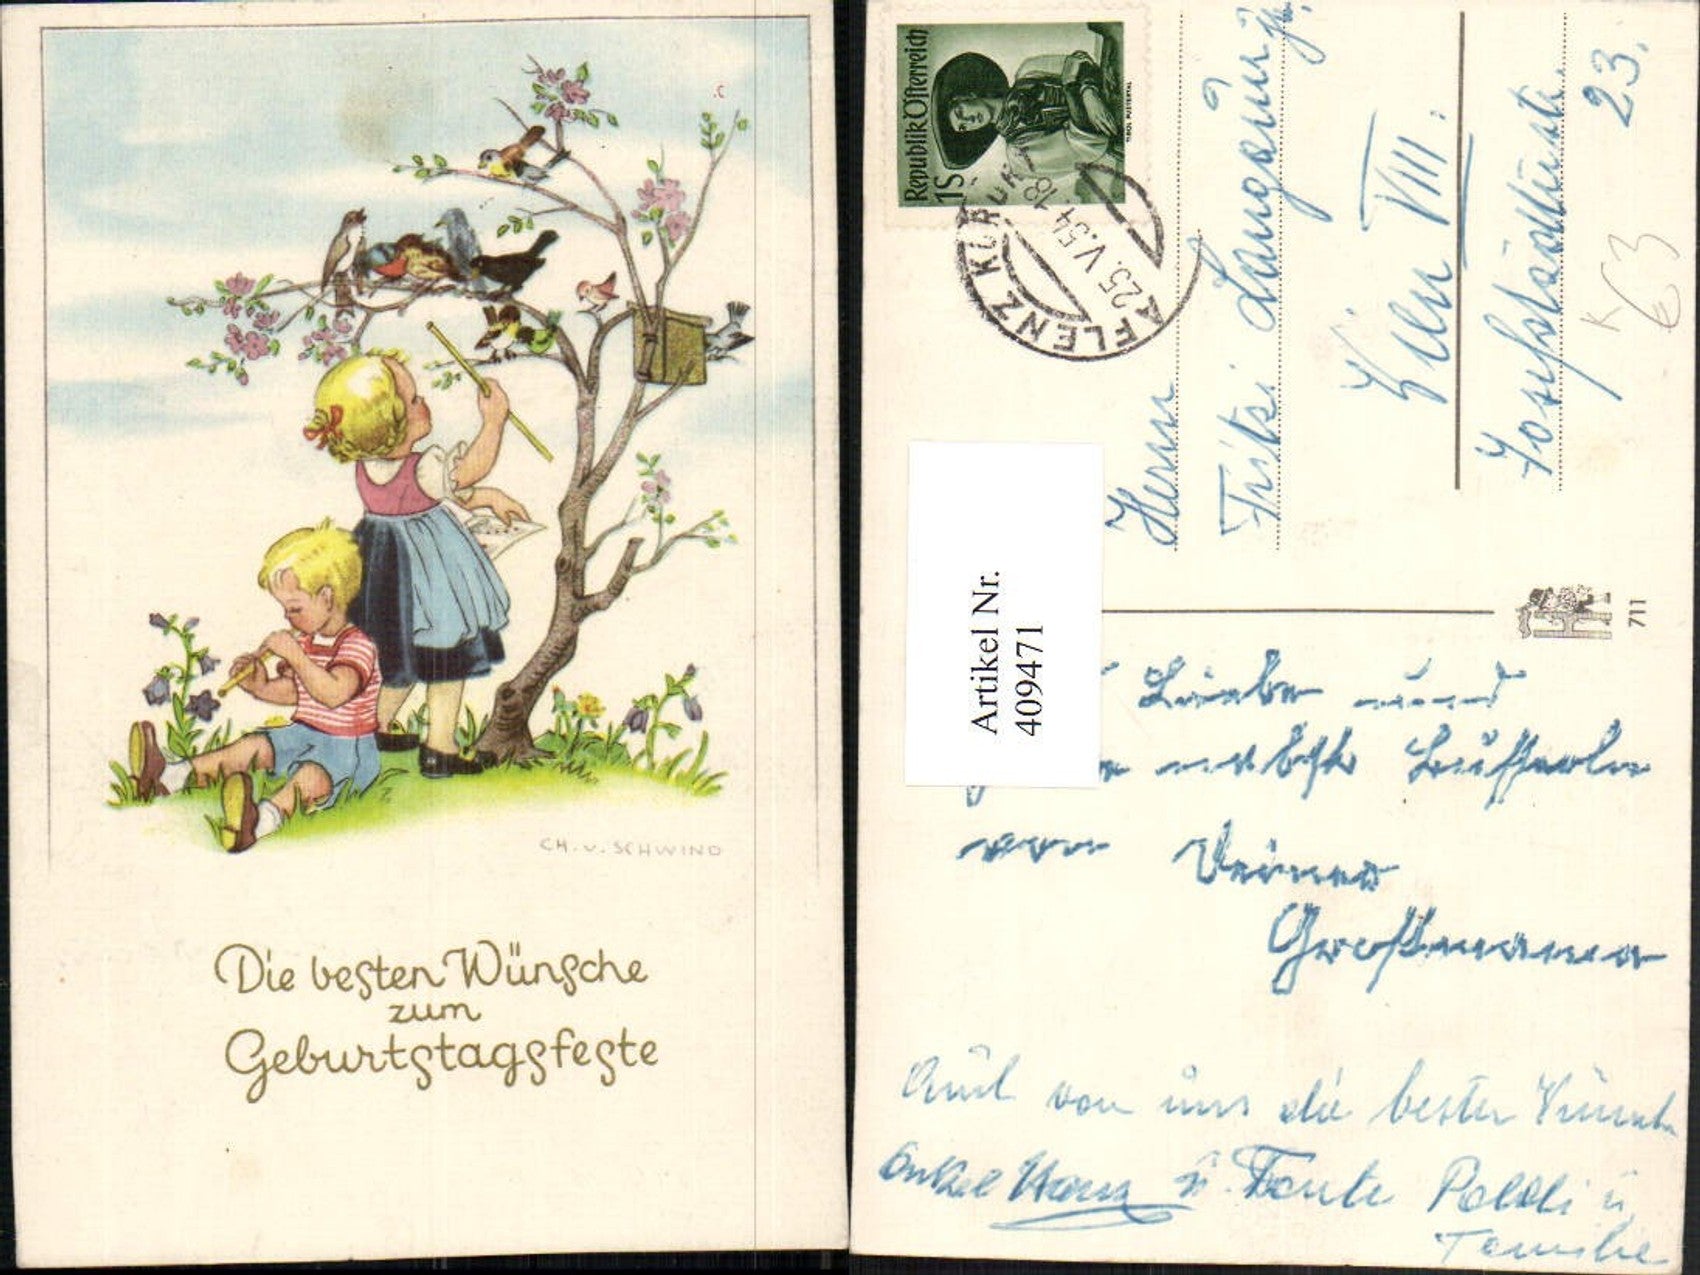 CH. v. SCHWIND
Die besten Wünsche
zum
Geburtstagsfeste
Republik Österreich
1S
TIROL PUSTERTAL
AFLENZ KURORT
25.V.54.18
Herrn
Fritzi
Wien VIII.
Josefstädterstr. 23.
K
€3
Artikel Nr.
409471
711
Liebe und
von Deiner
Großmama
Auch von uns die besten Wünsche
Onkel Hans u. Tante Poldi u.
Familie